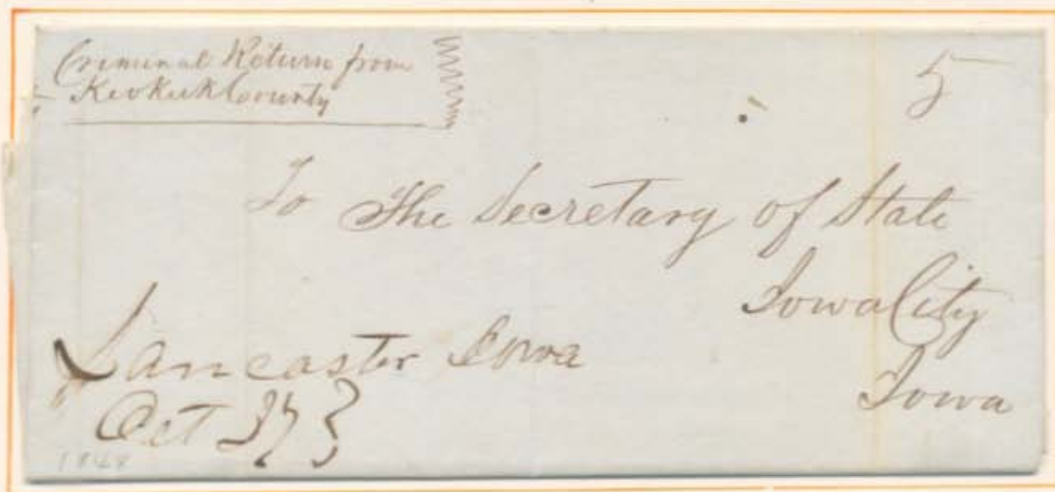 Criminal Return from
Keokuk County
5
To The Secretary of State
Iowa City
Iowa
Lancaster Iowa
Oct 27
1848